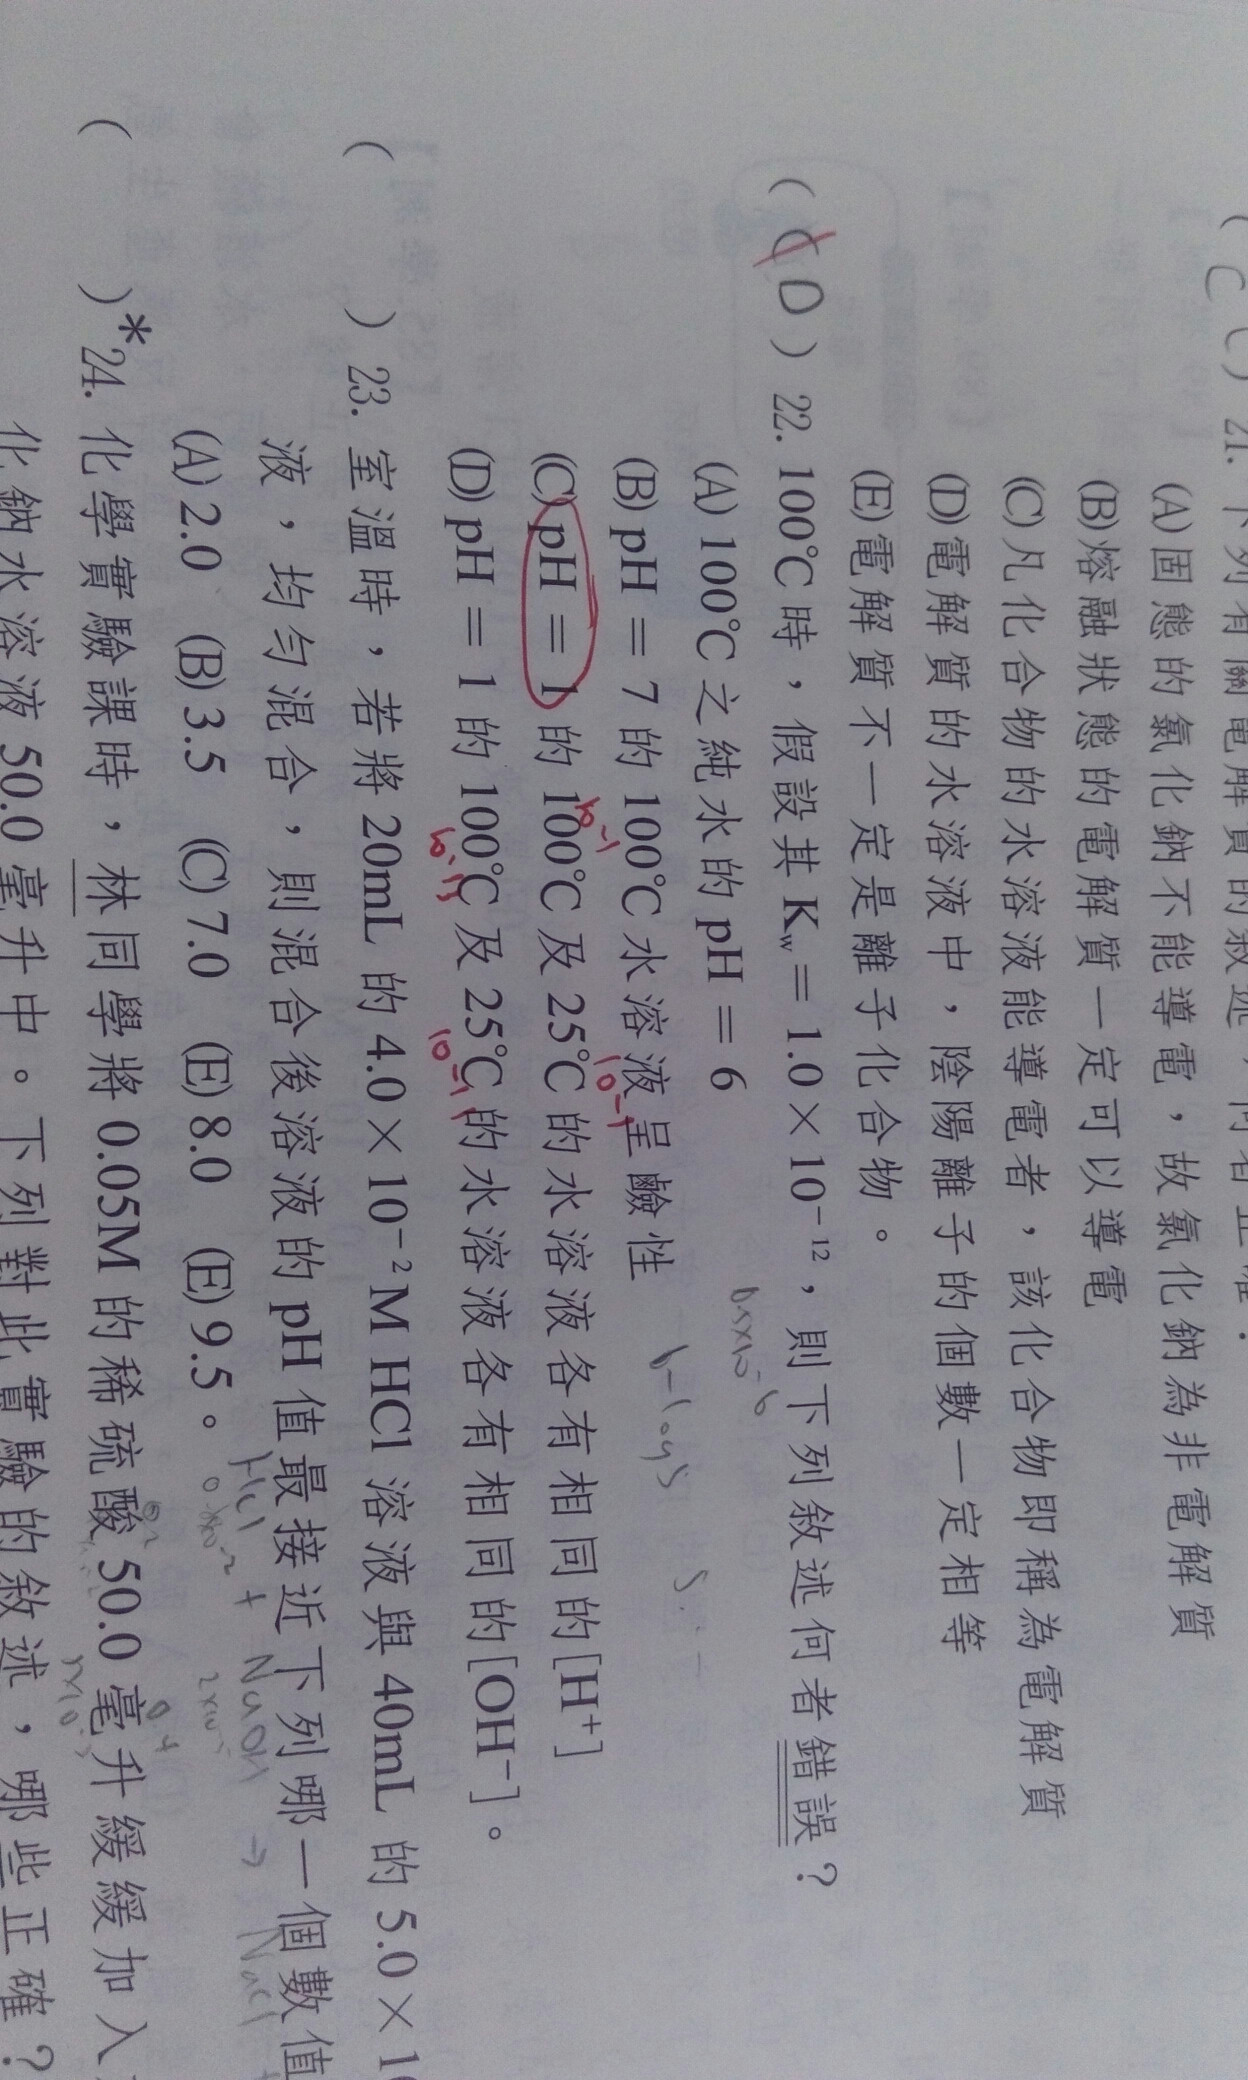 ( C C ) 21. 下列有關電解質的敘述，何者正確？
(A) 固態的氯化鈉不能導電，故氯化鈉為非電解質
(B) 熔融狀態的電解質一定可以導電
(C) 凡化合物的水溶液能導電者，該化合物即稱為電解質
(D) 電解質的水溶液中，陰陽離子的個數一定相等
(E) 電解質不一定是離子化合物。
( C D ) 22. 100℃時，假設其 Kw = 1.0 × 10⁻¹²，則下列敘述何者錯誤？
(A) 100℃之純水的 pH = 6
(B) pH = 7 的 100℃水溶液呈鹼性
6-log5
10⁻¹ 10⁻¹
(C) pH = 1 的 100℃及 25℃的水溶液各有相同的[H⁺]
(D) pH = 1 的 100℃及 25℃的水溶液各有相同的[OH⁻]。
( ) 23. 室溫時，若將 20mL 的 4.0 × 10⁻² M HCl 溶液與 40mL 的 5.0 × 10
液，均勻混合，則混合後溶液的 pH 值最接近下列哪一個數值
(A) 2.0 (B) 3.5 (C) 7.0 (E) 8.0 (E) 9.5。
HCl + NaOH → NaCl +
( )*24. 化學實驗課時，林同學將 0.05M 的稀硫酸 50.0 毫升緩緩加入
化鈉水溶液 50.0 毫升中。下列對此實驗的敘述，哪些正確？